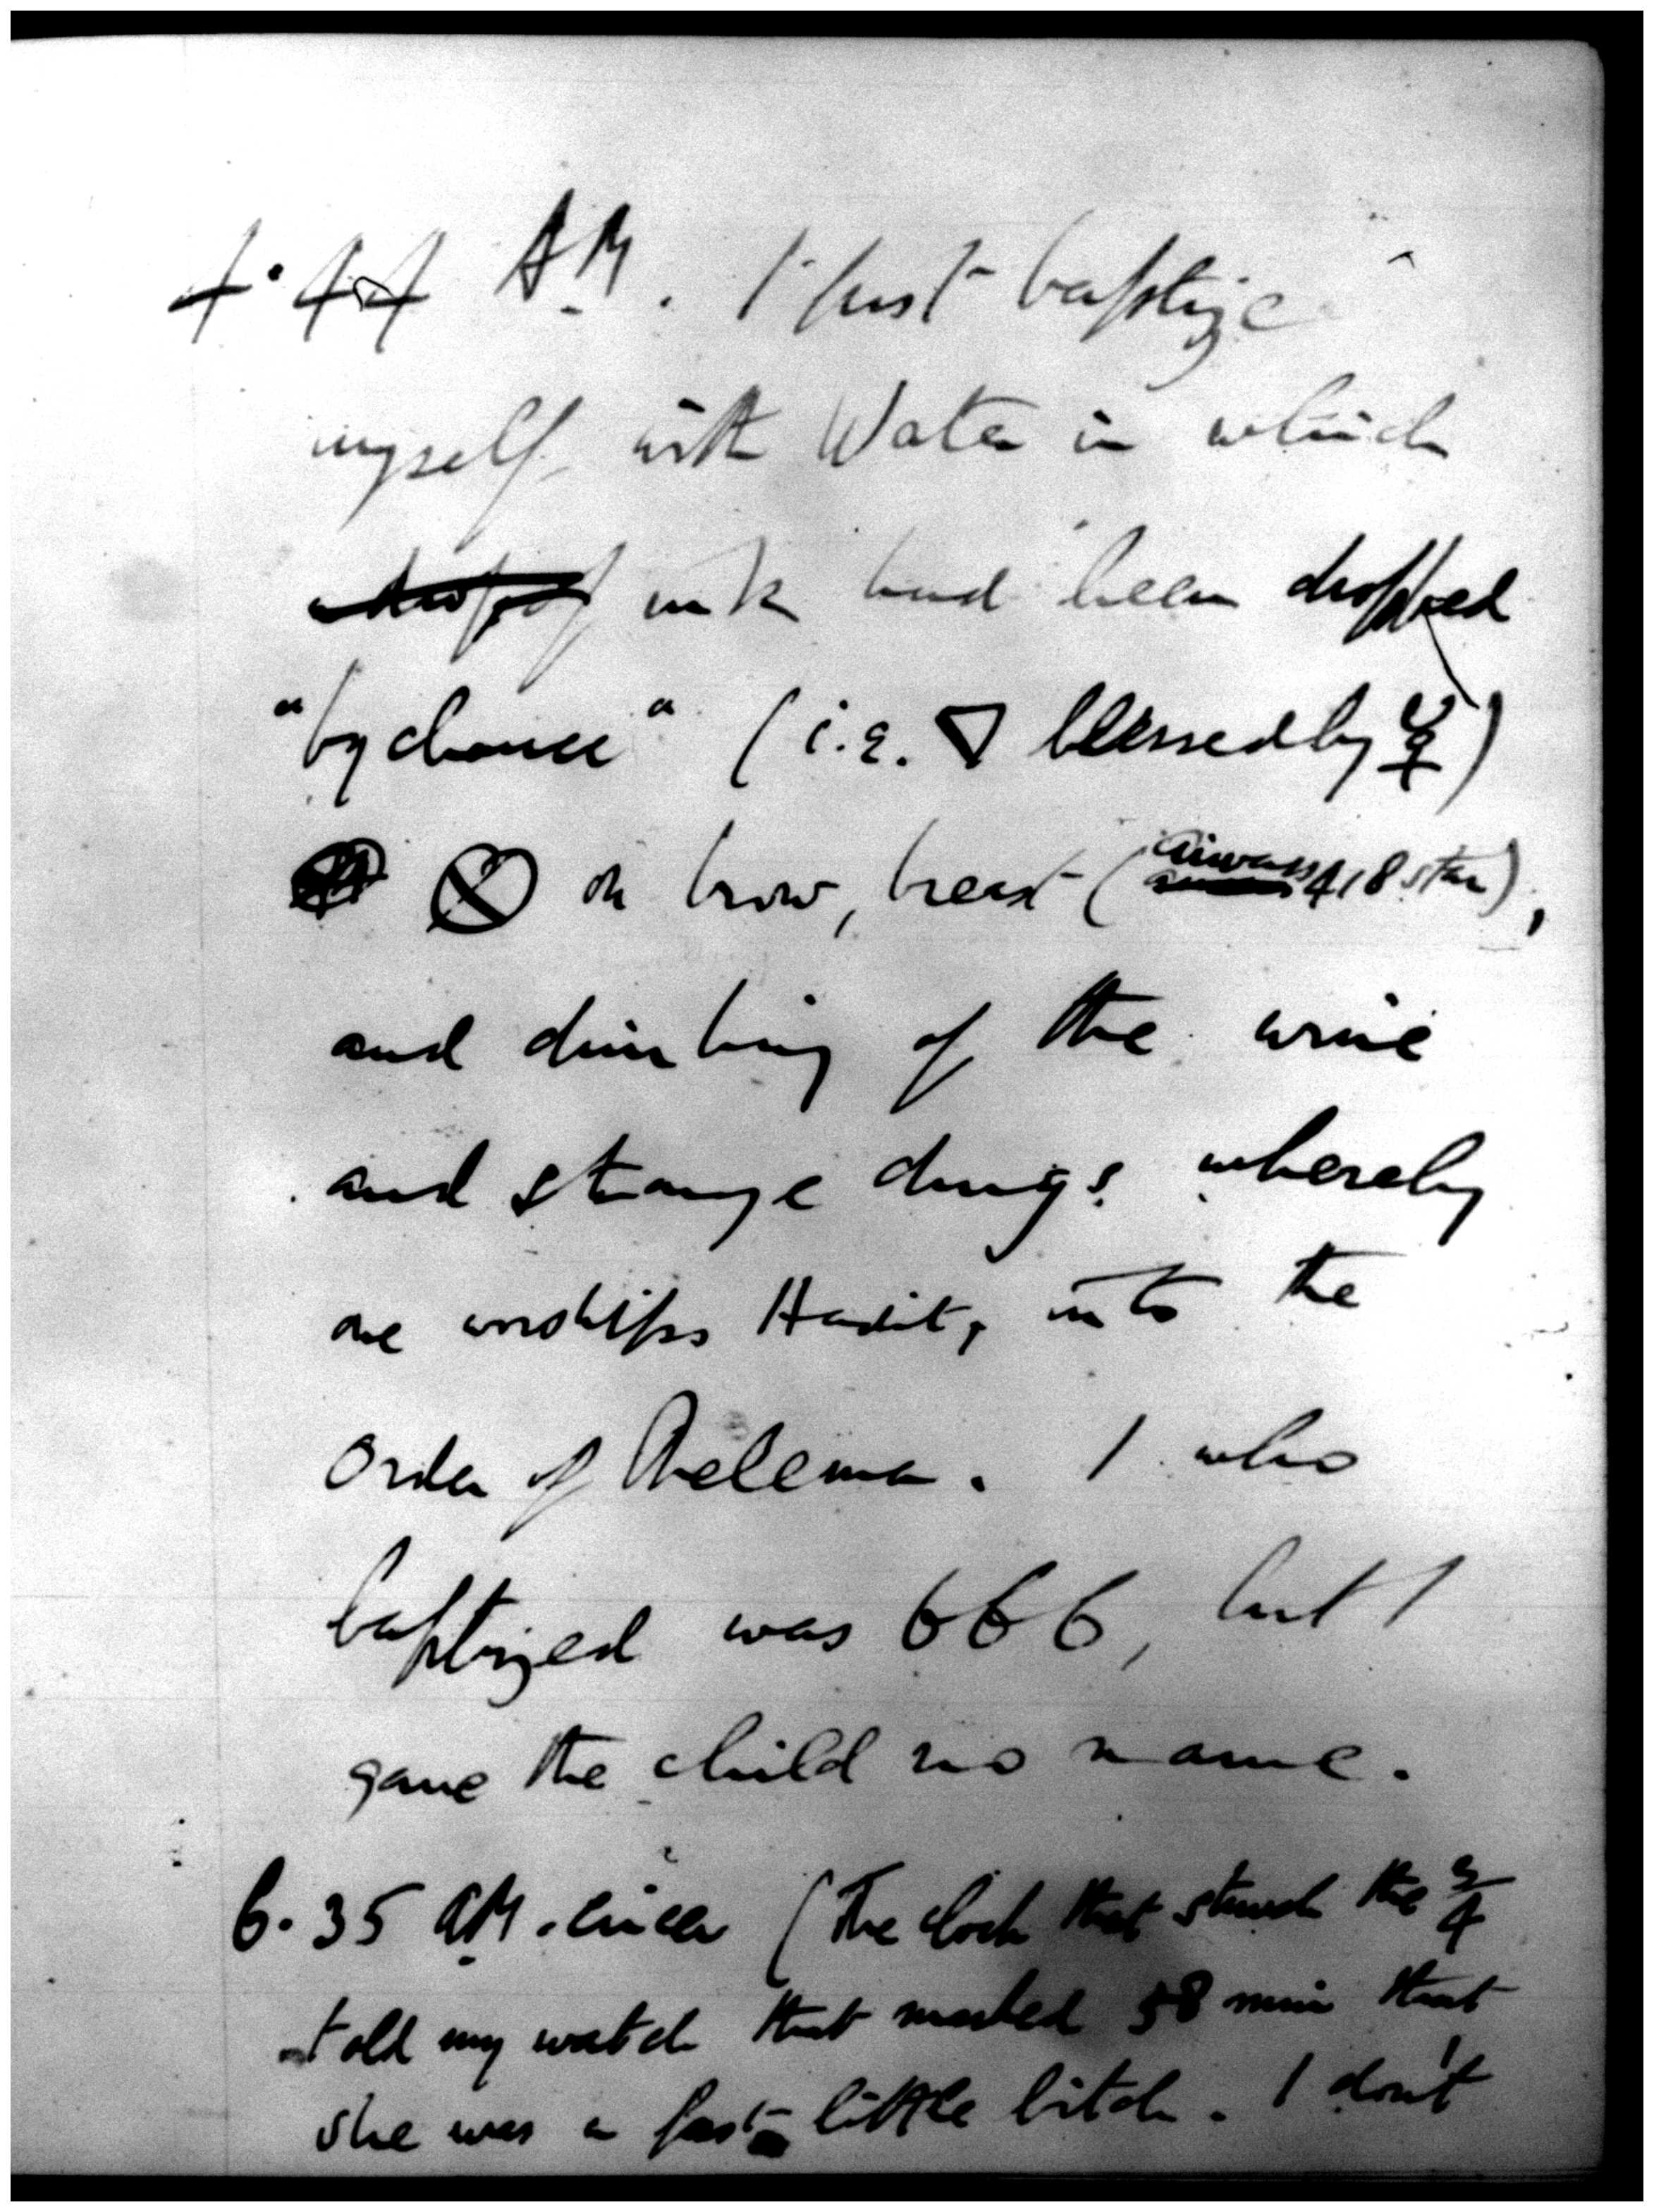 4.44 AM. I first baptize
myself with Water in which
ink had been dropped
"by chance" (i.e. ▽ blessed by ☿)
⊗ on brow, breast (Aiwass 418 star),
and drinking of the wine
and strange drugs whereby
one worships Hadit, into the
Order of Thelema. I who
baptized was 666, but I
gave the child no name.
6.35 AM. circa (The clock that struck the 3/4
told my watch that marked 38 min that
she was a fast little bitch. I don't